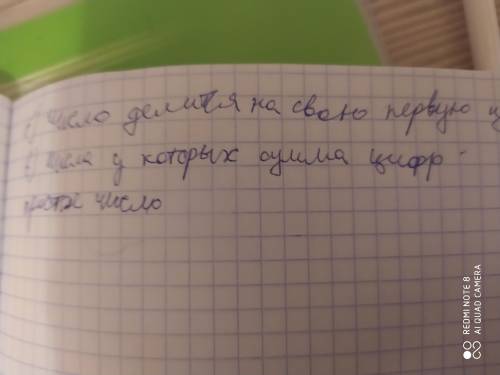 Число делится на свою первую ц
Числа у которых сумма цифр
число
REDMI NOTE 8
AI QUAD CAMERA